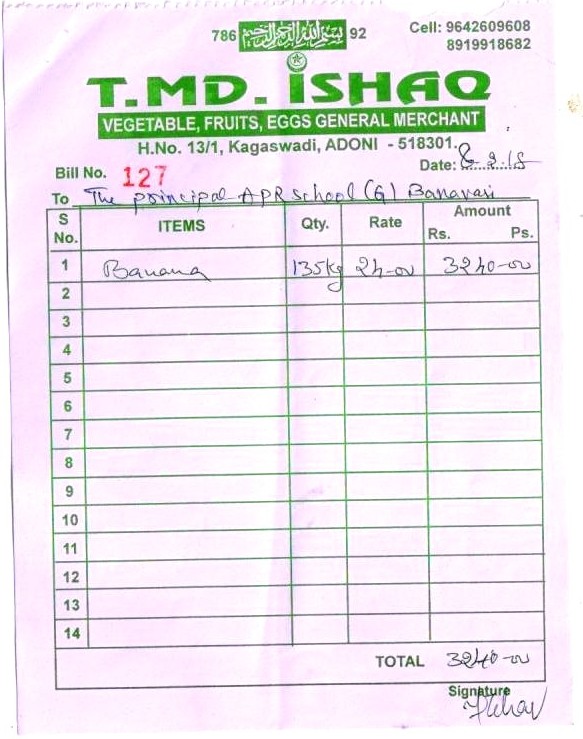 786 بسم الله الرحمن الرحيم 92
Cell: 9642609608
8919918682
T.MD. ISHAQ
VEGETABLE, FRUITS, EGGS GENERAL MERCHANT
H.No. 13/1, Kagaswadi, ADONI - 518301.
Bill No. 127 Date: 8.2.18
To The principal APR school (G) Banavasi
S No. ITEMS Qty. Rate Amount Rs. Ps.
1 Banana 135kg 24-00 3240-00
2
3
4
5
6
7
8
9
10
11
12
13
14
TOTAL 3240-00
Signature